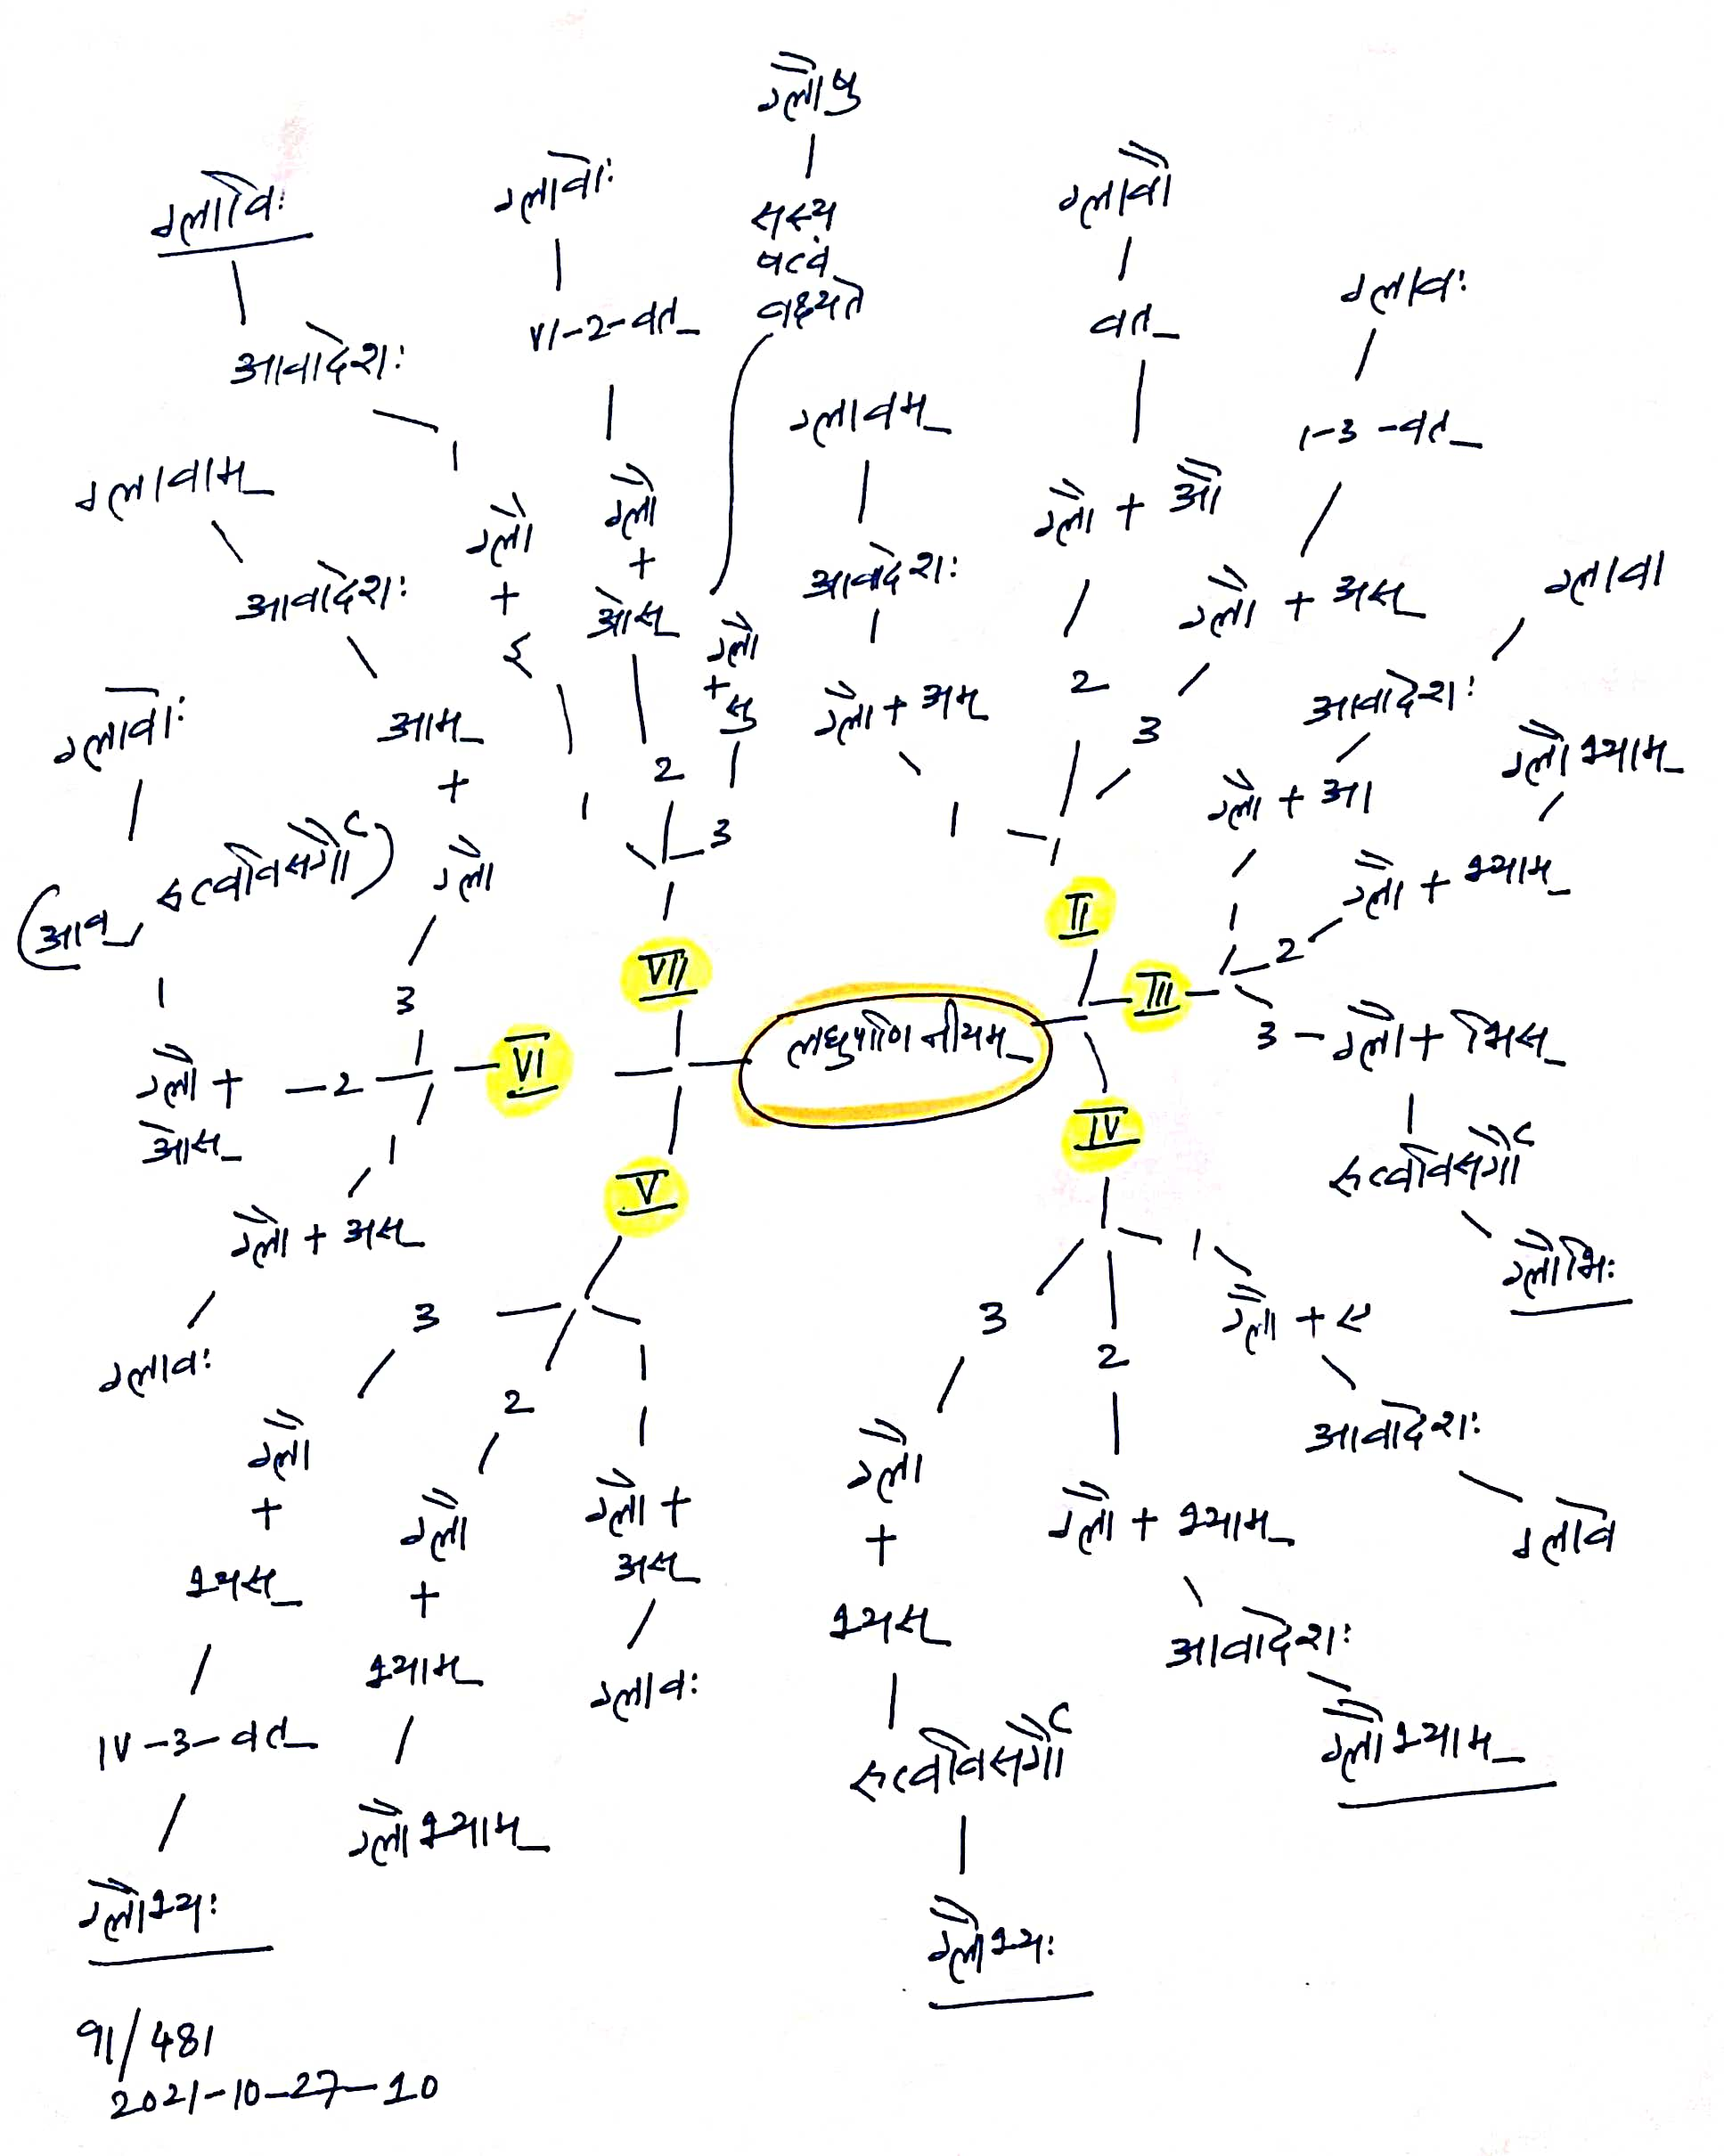 ग्लौषु
सस्य
षत्वं
वक्ष्यते
ग्लावि:
आवादेशः
1
ग्लौ
+
इ
ग्लावोः
VI-2-वत्
ग्लौ
+
ओस्
2
ग्लौ
+
सु
3
VII
ग्लावम्
आवादेशः
ग्लौ + अम्
1
ग्लावौ
वत्
ग्लौ + औ
2
ग्लावः
1-3-वत्
ग्लौ + अस्
3
II
ग्लावा
आवादेशः
ग्लौ + आ
1
ग्लौभ्याम्
ग्लौ + भ्याम्
2
III
3 - ग्लौ + भिस्
रुत्वविसर्गौ
ग्लौभिः
लघुपाणिनीयम्
IV
1
ग्लौ + ए
आवादेशः
ग्लावे
2
ग्लौ + भ्याम्
आवादेशः
ग्लौभ्याम्
3
ग्लौ
+
भ्यस्
रुत्वविसर्गौ
ग्लौभ्यः
V
1
ग्लौ +
अस्
ग्लावः
2
ग्लौ
+
भ्याम्
ग्लौभ्याम्
3
ग्लौ
+
भ्यस्
IV-3-वत्
ग्लौभ्यः
VI
1
ग्लौ + अस्
ग्लावः
ग्लावोः
(आव्, रुत्वविसर्गौ)
ग्लौ + -2-
ओस्
ग्लावाम्
आवादेशः
आम्
+
ग्लौ
3
91/481
2021-10-27-10